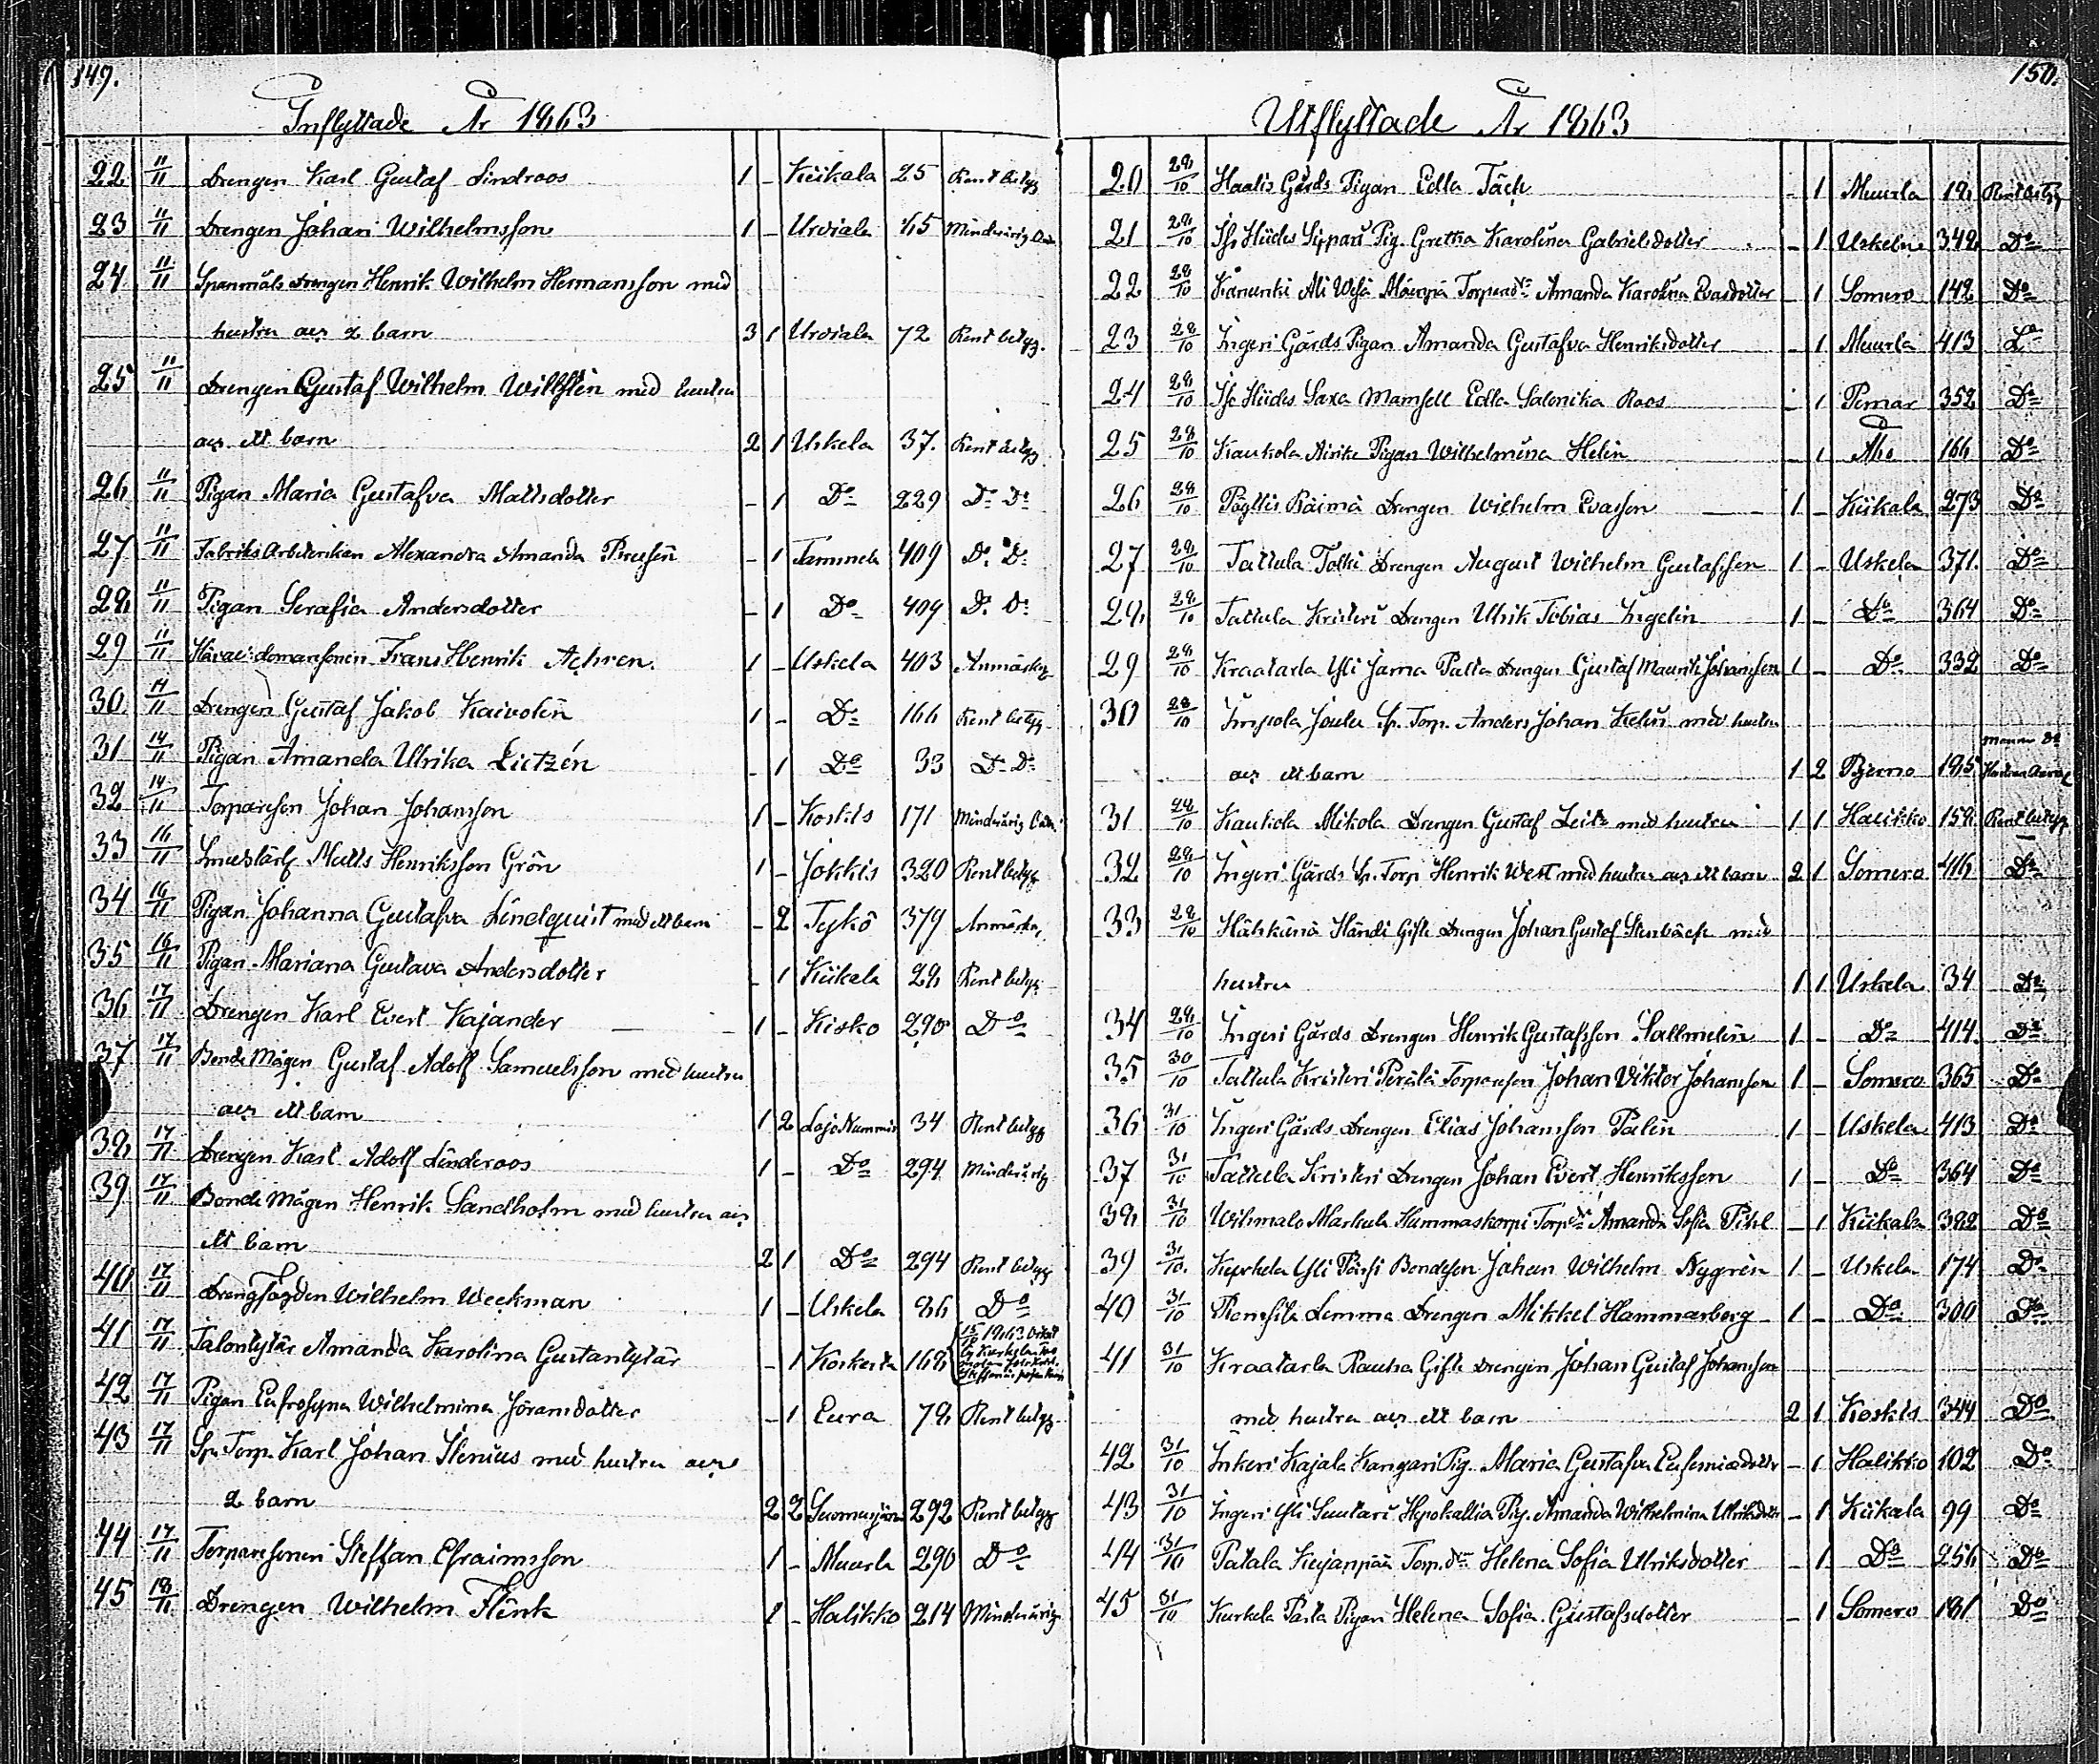 149.
Inflyttade År 1863
22 11/11 Drengen Karl Gustaf Lindroos 1 - Kiikala 25 Rent betyg
23 11/11 Drengen Johan Wilhelmsson 1 - Urdiala 65 Minderårig
24 11/11 Spanmåls drengen Henrik Wilhelm Hermansson med
hustru och 2 barn 3 1 Urdiala 72 Rent betyg.
25 11/11 Drengen Gustaf Wilhelm med hustru
och ett barn 2 1 Uskela 37. Rent betyg
26 11/11 Pigan Maria Gustafva Mattsdotter - 1 Do 229 Do Do
27 11/11 Fabriks Arbeterskan Alexandra Amanda - 1 Tammela 409 Do Do
28 11/11 Pigan Serafia Andersdotter - 1 Do 409 Do Do
29 11/11 Frans Henrik Achren. 1 - Uskela 403 Anmärkn
30 14/11 Drengen Gustaf Jakob Kaivolin 1 - Do 166 Rent betyg
31 14/11 Pigan Amanda Ulrika Lietzén - 1 Do 33 Do Do
32 14/11 Torparesson Johan Johansson 1 - Koskis 171 Minderårig
33 16/11 Matts Henriksson Grön 1 - Jokkis 320 Rent betyg
34 16/11 Pigan Johanna Gustafva Lindquist med ett barn - 2 Tykö 379 Anmärkn.
35 16/11 Pigan Mariana Gustava Andersdotter - 1 Kiikala 28 Rent betyg
36 17/11 Drengen Karl Evert Kajander 1 - Kisko 290 Do
37 17/11 Bonde Mågen Gustaf Adolf Samuelsson med hustru
och ett barn 1 2 Lojo Nummis 34 Rent betyg
38 17/11 Drengen Karl Adolf Linderoos 1 - Do 294 Minderårig
39 17/11 Bonde Mågen Henrik Sandholm med hustru och
ett barn 2 1 Do 294 Rent betyg
40 17/11 Wilhelm Weckman 1 - Uskela 86 Do
41 17/11 Talontytär Amanda Karolina Gustantytär - 1 Koskesta 168 15/10 1863
42 17/11 Pigan Eufrosyna Wilhelmina Jöransdotter - 1 Eura 78 Rent betyg
43 17/11 Sp. Torp. Karl Johan Stenius med hustru och
2 barn 2 2 Suomusjärvi 292 Rent betyg
44 17/11 Torparesonen Steffan Efraimsson 1 - Muurla 290 Do
45 18/11 Drengen Wilhelm Flink 1 - Halikko 214 Minderårig
150.
Utflyttade År 1863
20 28/10 Haalis Gårds Pigan Edla Täck - 1 Muurla 18 Rent betyg
21 28/10 Hiides Sippari Pig. Gretha Karolina Gabrielsdotter - 1 Uskela 348 Do
22 28/10 Ali Torpared:r Amanda Karolina Evasdotter - 1 Somero 142 Do
23 28/10 Ingeri Gårds Pigan Amanda Gustafva Henriksdotter - 1 Muurla 413 Do
24 28/10 Hiides Saxa Mamsell Edla Salonika Roos - 1 Pemar 352 Do
25 28/10 Kaukola Pigan Wilhelmina Helin - 1 Åbo 166 Do
26 28/10 Pöytlis Räimä Drengen Wilhelm Evasson 1 - Kiikala 273 Do
27 28/10 Tattula Tolki Drengen August Wilhelm Gustafsson 1 - Uskela 371. Do
28 28/10 Tattula Kristeri Drengen Ulrik Tobias Ingelin 1 - Do 364 Do
29 28/10 Kraatarla Yli Jama Palta Drengen Gustaf Maurits Johansson 1 - Do 332 Do
30 28/10 Impola Joula Sp. Torp. Anders Johan Helin med hustru
och ett barn 1 2 Bjerno 185 Mannen Do Hustrun
31 28/10 Kaukola Mikola Drengen Gustaf Leits med hustru 1 1 Halikko 158 Rent betyg
32 28/10 Ingeri Gårds Sp. Torp Henrik West med hustru och ett barn 2 1 Somero 416 Do
33 28/10 Händi Gifte Drengen Johan Gustaf Stenbäck med
hustru 1 1 Uskela 34 Do
34 28/10 Ingeri Gårds Drengen Henrik Gustafsson Sallmelin 1 - Do 414. Do
35 30/10 Tattula Kristeri Perälä Torparesson Johan Viktor Johansson 1 - Somero 365 Do
36 31/10 Ingeri Gårds Drengen Elias Johansson Palin 1 - Uskela 413 Do
37 31/10 Tattula Kristeri Drengen Johan Evert Henriksson 1 - Do 364 Do
38 31/10 Wihmalo Markula Hummaskorpi Torp:dr Amanda Sofia Pihl - 1 Kiikala 382 Do
39 31/10. Kurkela Yli Pänsi Bondeson Johan Wilhelm Nygrén 1 - Uskela 174 Do
40 31/10 Remsila Lemma Drengen Mikkel Hammarberg 1 - Do 300 Do
41 31/10 Kraatarla Rauha Gifte Drengen Johan Gustaf Johansson
med hustru och ett barn 2 1 Koskis 344 Do
42 31/10 Inkeri Kajala Kangari Pig. Maria Gustafva Eufemiadotter - 1 Halikko 102 Do
43 31/10 Ingeri Yli Suutari Hepokallia Pig. Amanda Wilhelmina Ulriksdotter - 1 Kiikala 99 Do
44 31/10 Patala Kujanpää Torp.dtr Helena Sofia Ulriksdotter - 1 Do 256 Do
45 31/10 Kurkela Parla Pigan Helena Sofia Gustafsdotter - 1 Somero 181 Do